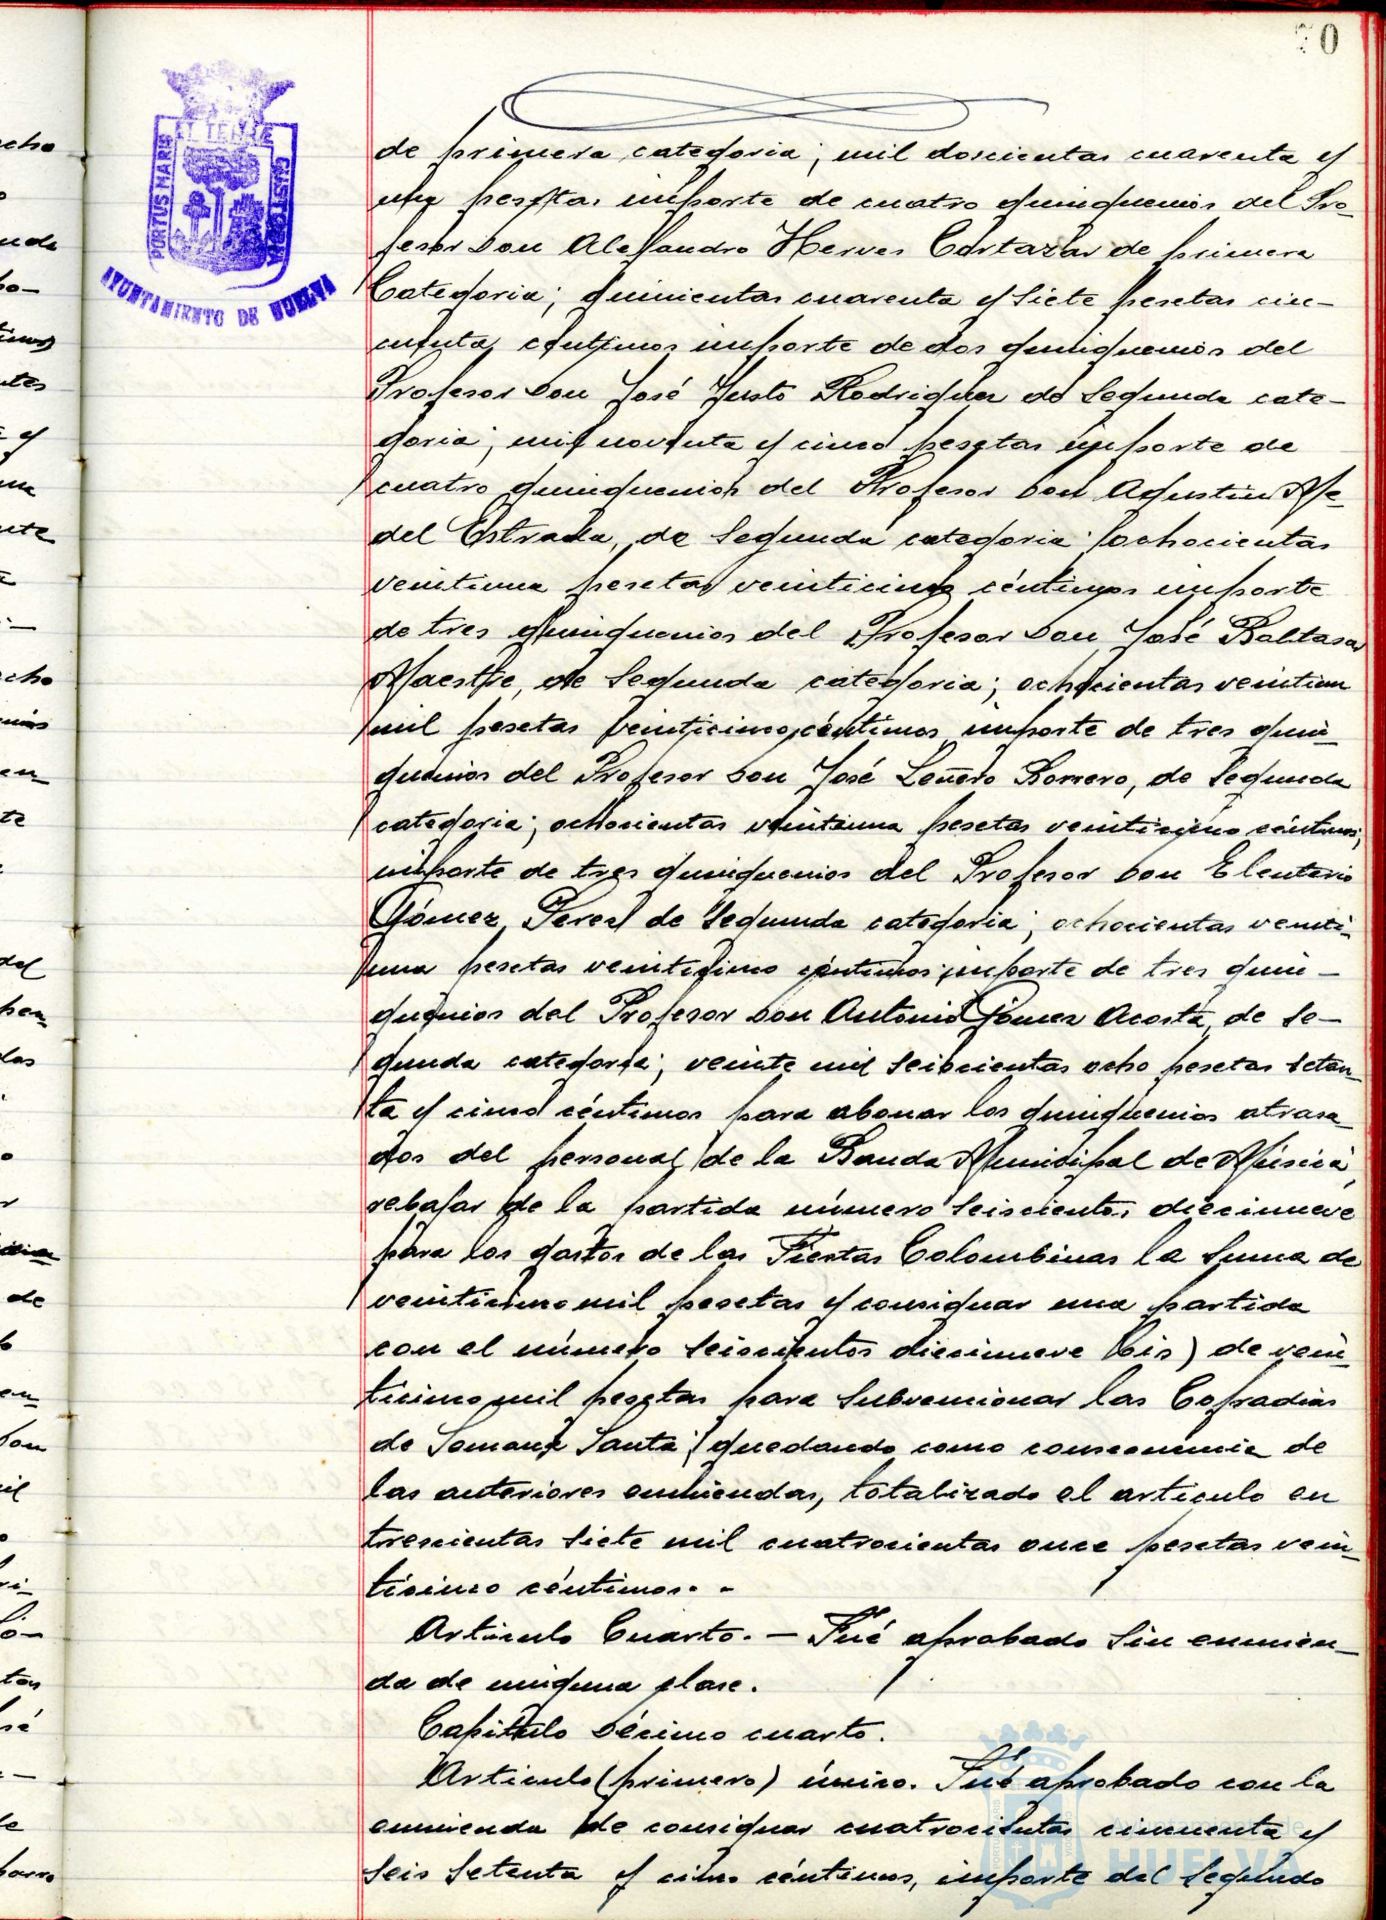 70
ET TERRE
PORTUS MARIS
CUSTODIA
AYUNTAMIENTO DE HUELVA
de primera categoria; mil doscientas cuarenta y
una pesetas importe de cuatro quinquenios del Pro-
fesor Don Alejandro Herves Cortazar de primera
Categoria; quinientas cuarenta y siete pesetas cin-
cuenta centimos importe de dos quinquenios del
Profesor Don José Justo Rodriguez de Segunda cate-
goria; mil noventa y cinco pesetas importe de
cuatro quinquenios del Profesor Don Agustin Me-
del Estrada, de Segunda categoria; ochocientas
veintiuna pesetas veinticinco céntimos importe
de tres quinquenios del Profesor Don José Baltasar
Maestre, de Segunda categoria; ochocientas veintiun
mil pesetas veinticinco céntimos importe de tres quin-
quenios del Profesor Don José Leñero Borrero, de Segunda
categoria; ochocientas veintiuna pesetas veinticinco céntimos;
importe de tres quinquenios del Profesor Don Eleuterio
Gómez Perez de Segunda categoria; ochocientas veinti-
una pesetas veinticinco céntimos importe de tres quin-
quenios del Profesor Don Antonio Gómez Acosta, de Se-
gunda categoria; veinte mil seiscientas ocho pesetas seten-
ta y cinco céntimos para abonar los quinquenios atrasa-
dos del personal de la Banda Municipal de Música,
rebajar de la partida número seiscientos diecinueve
para los gastos de las Fiestas Colombinas la suma de
veinticinco mil pesetas y consignar una partida
con el número seiscientos diecinueve (bis) de vein-
ticinco mil pesetas para subvencionar las Cofradias
de Semana Santa; quedando como consecuencia de
las anteriores enmiendas, totalizado el articulo en
trescientas siete mil cuatrocientas once pesetas vein-
ticinco céntimos. -
Articulo Cuarto. - Fué aprobado sin enmien-
da de ninguna clase.
Capitulo Décimo cuarto.
Articulo (primero) único. Fué aprobado con la
enmienda de consignar cuatrocientas cincuenta y
seis setenta y cinco céntimos, importe del segundo
Ayuntamiento de
HUELVA